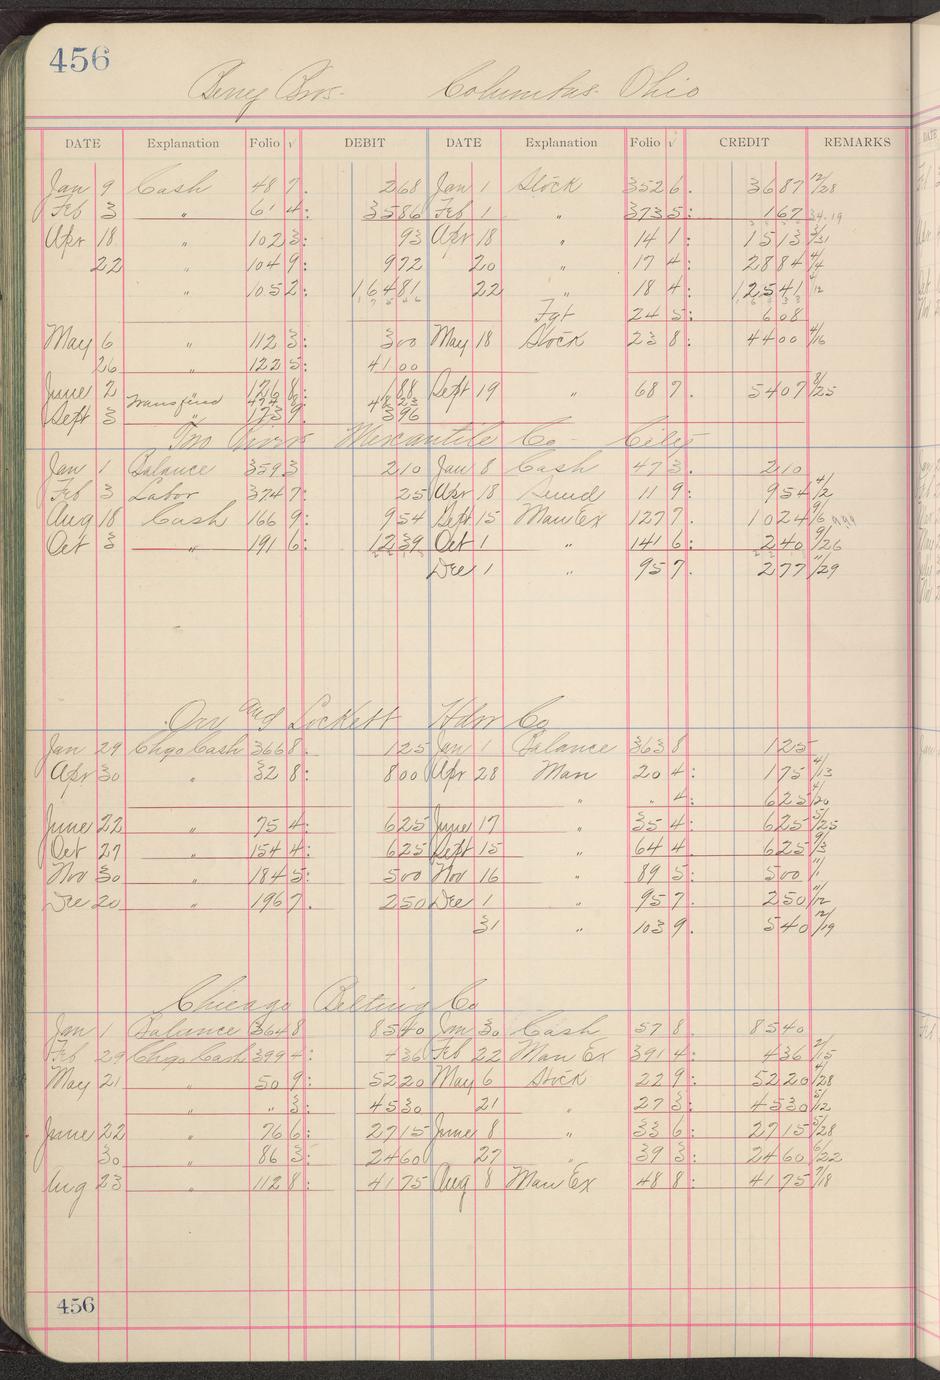 456
Columbus Ohio
DATE Explanation Folio √ DEBIT DATE Explanation Folio √ CREDIT REMARKS
Jan 9 Cash 48 7. 2 68 Jan 1 Stock 352 6. 36 87 12/28
Feb 3 " 61 4: 35 86 Feb 1 " 373 5: 1 67 34.19
Apr 18 " 102 3: 93 Apr 18 " 14 1: 15 13 3/31
22 " 104 9: 9 72 20 " 17 4: 28 84 4/4
" 105 2: 164 81 22 " 18 4: 125 41 4/12
Fgt 24 5: 6 08
May 6 " 112 3: 3 00 May 18 Stock 23 8: 44 00 4/16
26 " 122 5: 41 00
June 2 126 8: 1 88 Sept 19 " 68 7. 54 07 8/25
Sept 3 " 173 9. 3 96
Two Rivers Mercantile Co - City
Jan 1 Balance 359 3 2 10 Jan 8 Cash 47 3. 2 10
Feb 3 Labor 374 7: 25 Apr 18 Sund 11 9: 9 54 4/2
Aug 18 Cash 166 9: 9 54 Sept 15 Man Ex 127 7. 10 24 9/6
Oct 3 " 191 6: 12 39 Oct 1 " 141 6: 2 40 9/26
Dec 1 " 95 7. 2 77 11/29
Orr and Lockett Hdw Co
Jan 29 Chgo Cash 366 8. 1 25 Jan 1 Balance 363 8 1 25
Apr 30 " 32 8: 8 00 Apr 28 Man 20 4: 1 75 4/13
" " 4: 6 25 4/20
June 22 " 75 4: 6 25 June 17 " 35 4: 6 25 5/25
Oct 27 " 154 4: 6 25 Sept 15 " 64 4: 6 25 9/3
Nov 30 " 184 5: 5 00 Nov 16 " 89 5: 5 00 11/1
Dec 20 " 196 7. 2 50 Dec 1 " 95 7. 2 50 11/12
31 " 103 9. 5 40 12/19
Chicago Belting Co
Jan 1 Balance 364 8 85 40 Jan 30 Cash 57 8. 85 40
Feb 29 Chgo Cash 399 4: 4 36 Feb 22 Man Ex 391 4: 4 36 2/15
May 21 " 50 9: 52 20 May 6 Stock 22 9: 52 20 4/28
" " 3: 45 30 21 " 27 3: 45 30 5/12
June 22 " 76 6: 27 15 June 8 " 33 6: 27 15 5/28
30 " 86 3: 24 60 27 " 39 3: 24 60 6/22
Aug 23 " 112 8: 41 75 Aug 8 Man Ex 48 8: 41 75 7/18
456